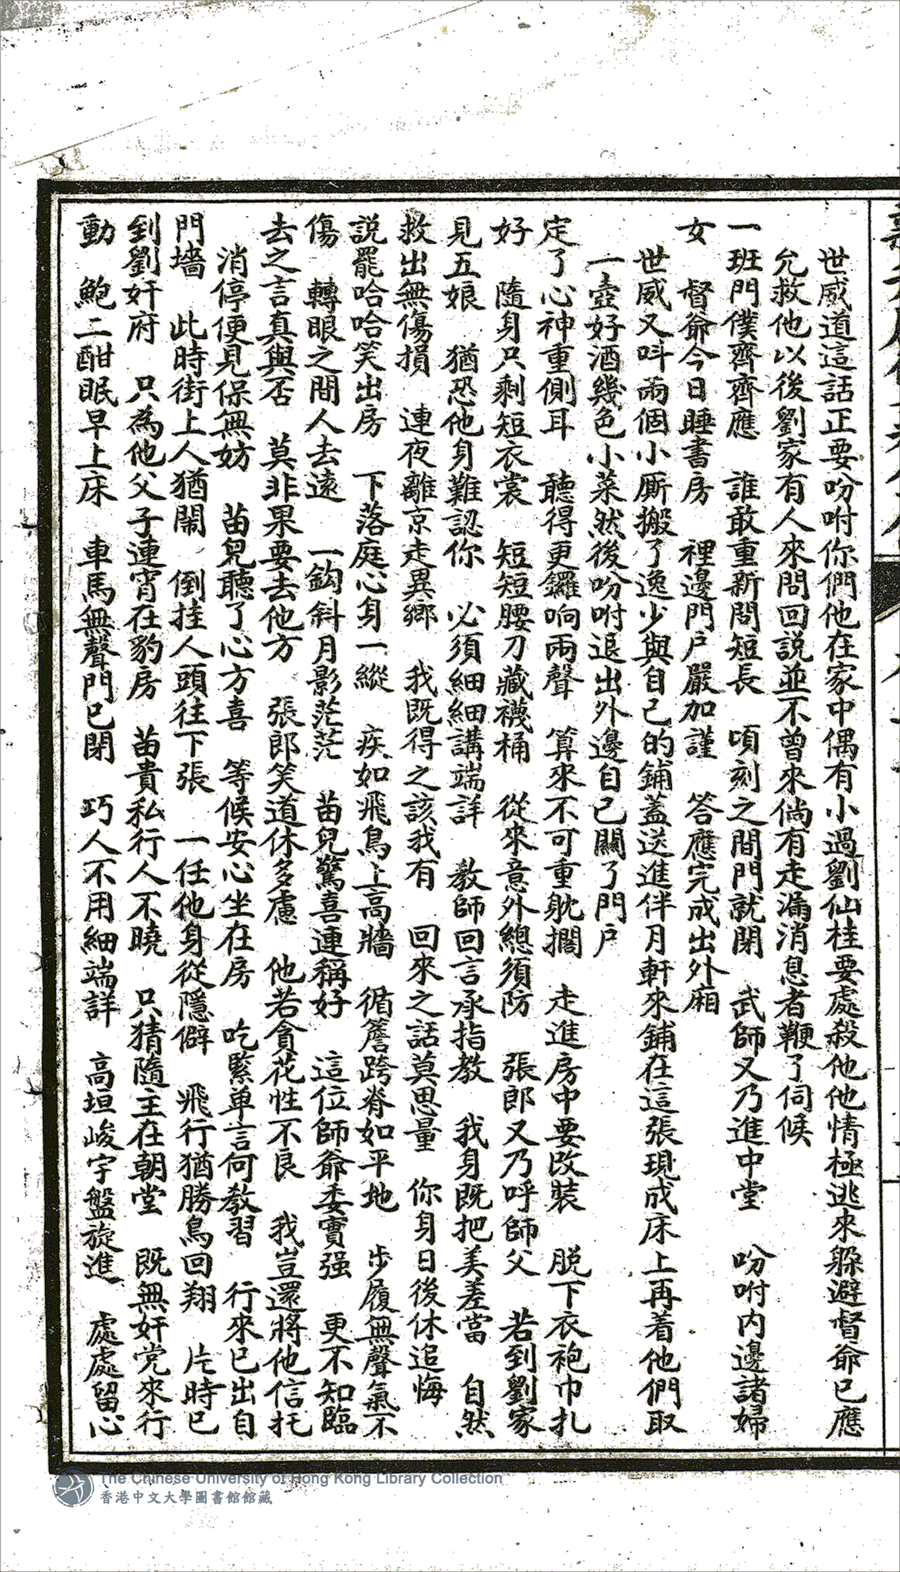 世威道這話正要吩咐你們他在家中偶有小過劉仙桂要處殺他他情極逃來躲避督爺已應
允救他以後劉家有人來問回説並不曾來倘有走漏消息者鞭了伺候
一班門僕齊齊應　誰敢重新問短長　頃刻之間門就閉　武師又乃進中堂　吩咐内邊諸婦
女　督爺今日睡書房　裡邊門户嚴加謹　答應完成出外廂
世威又呌兩個小厮搬了逸少與自己的鋪蓋送進伴月軒來鋪在這張現成床上再着他們取
一壺好酒幾色小菜然後吩咐退出外邊自己關了門户
定了心神重側耳　聽得更鑼响兩聲　算來不可重躭擱　走進房中要改裝　脱下衣袍巾扎
好　隨身只剩短衣裳　短短腰刀藏襪桶　從來意外總須防　張郎又乃呼師父　若到劉家
見五娘　猶恐他身難認你　必須細細講端詳　教師回言承指教　我身既把美差當　自然
救出無傷損　連夜離京走異鄉　我既得之該我有　回來之話莫思量　你身日後休追悔
説罷哈哈笑出房　下落庭心身一縱　疾如飛鳥上高牆　循簷跨脊如平地　步履無聲氣不
傷　轉眼之間人去遠　一鈎斜月影茫茫　苗兒驚喜連稱好　這位師爺委實强　更不知臨
去之言真與否　莫非果要去他方　張郎笑道休多慮　他若貪花性不良　我豈還將他信托
消停便見保無妨　苗兒聽了心方喜　等候安心坐在房　吃緊車言何教習　行來已出自
門墻　此時街上人猶閙　倒挂人頭往下張　一任他身從隱僻　飛行猶勝鳥回翔　片時已
到劉奸府　只為他父子連宵在豹房　苗貴私行人不曉　只猜隨主在朝堂　既無奸党來行
動　鮑二酣眠早上床　車馬無聲門已閉　巧人不用細端詳　高垣峻宇盤旋進　處處留心
The Chinese University of Hong Kong Library Collection
香港中文大學圖書館館藏